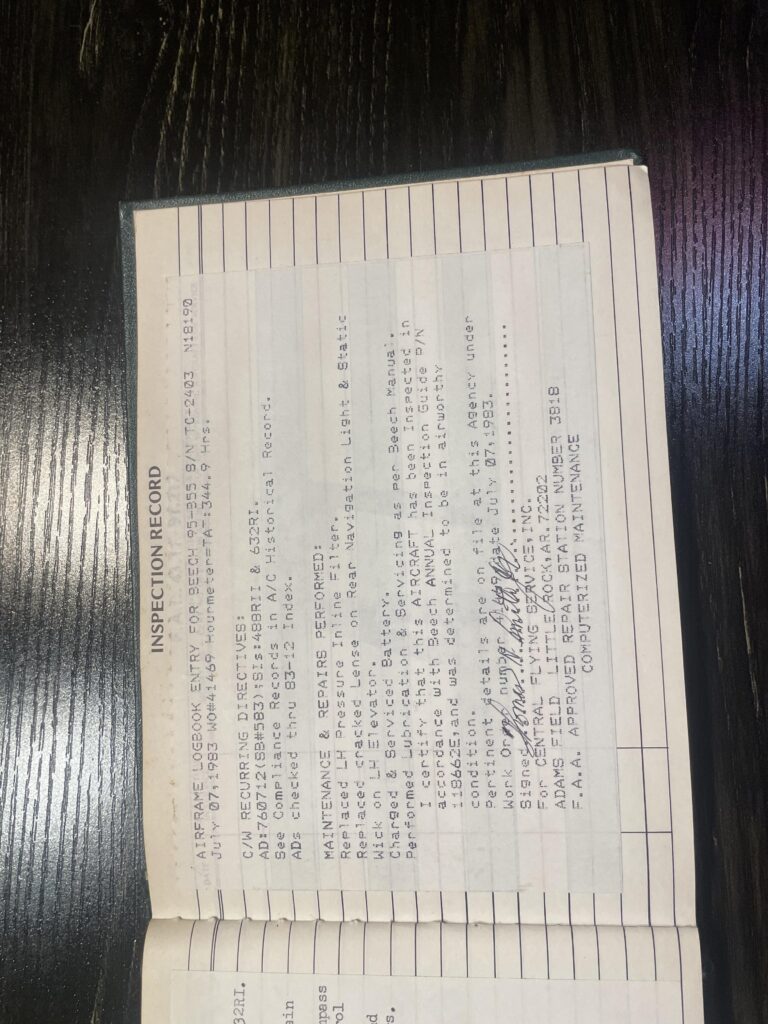 INSPECTION RECORD
AIRFRAME LOGBOOK ENTRY FOR BEECH 95-B55 S/N TC-2403 N18190
July 07,1983 WO#41469 Hourmeter=TAT:344.9 Hrs.
C/W RECURRING DIRECTIVES:
AD:760712(SB#583);SIs:488RII & 632RI.
See Compliance Records in A/C Historical Record.
ADs checked thru 83-12 Index.
MAINTENANCE & REPAIRS PERFORMED:
Replaced LH Pressure Inline Filter.
Replaced cracked Lense on Rear Navigation Light & Static
Wick on LH Elevator.
Charged & Serviced Battery.
Performed Lubrication & Servicing as per Beech Manual.
I certify that this AIRCRAFT has been Inspected in
accordance with Beech ANNUAL Inspection Guide P/N
118662E,and was determined to be in airworthy
condition.
Pertinent details are on file at this Agency under
Work Order number Date July 07,1983.
Signed
For CENTRAL FLYING SERVICE,INC.
ADAMS FIELD LITTLE ROCK,AR.72202
F.A.A. APPROVED REPAIR STATION NUMBER 3818
COMPUTERIZED MAINTENANCE
32RI.